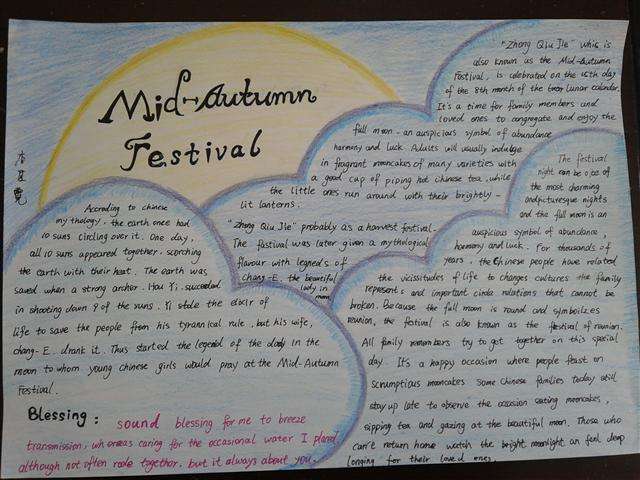 Mid-Autumn
Festival
"Zhong Qiu Jie" whis is
also known as the Mid-Autumn
Festival, is celebrated on the 15th day
of the 8th month of the lunar calendar.
It's a time for family members and
loved ones to congregate and enjoy the
full moon - an auspicious symbol of abundance
harmony and luck. Adults will usually indulge
in fragrant mooncakes of many varieties with
a good cup of piping hot chinese tea, while
the little ones run around with their brightly-
lit lanterns.
"Zhong Qiu Jie" probably as a harvest festival.
The fastival was later given a mythological
flavour with legneds of
chang-E, the beautiful
lady in
moon
According to chinese
mythology, the earth once had
10 suns circling over it. One day,
all 10 suns appeared together, scorching
the earth with their heat. The earth was
saved when a strong archer. Hou Yi. succeeded
in shooting down 9 of the suns. Yi stole the elixir of
life to save the people from his tyrannical rule, but his wife,
chang-E. drank it. Thus started the legend of the lady in the
moon to whom young chinese girls would pray at the Mid-Autumn
Festival.
The festival
night can be one of
the most charming
and picturesque nights
and the full moon is an
auspicious symbol of abundance,
harmony and luck. For thousands of
years, the Chinese people have related
the vicissitudes of life to changes cultures the family
represents and important circle relations that cannot be
broken. Because the full moon is round and symbolizes
reunion, the festival is also known as the festival of reunion.
All family members try to get together on this special
day. It's a happy occasion where people feast on
scrumptious mooncakes some Chinese families today still
stay up late to observe the occasion eating mooncakes,
sipping tea and gazing at the beautiful moon. Those who
can't return home watch the bright moonlight an feel deep
longing for their loved ones.
Blessing: sound blessing for me to breeze
transmission, whereas caring for the occasional water I planed
although not often rode together, but it always about you.